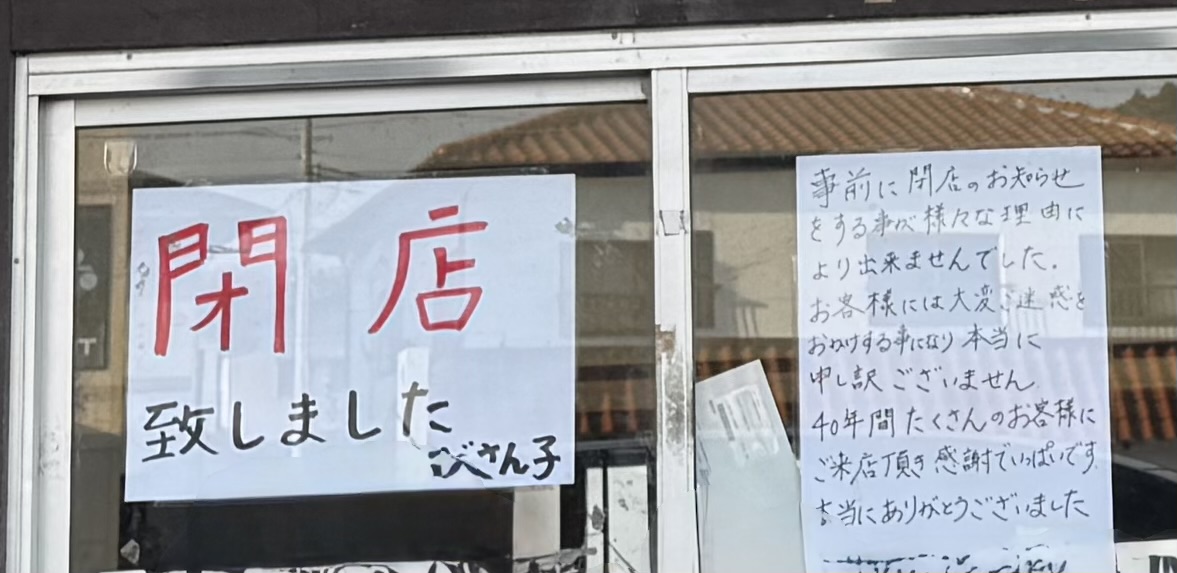 閉店
致しました
さん子
事前に閉店のお知らせ
をする事が様々な理由に
より出来ませんでした.
お客様には大変ご迷惑を
おかけする事になり本当に
申し訳ございません.
40年間たくさんのお客様に
ご来店頂き感謝でいっぱいです.
本当にありがとうございました